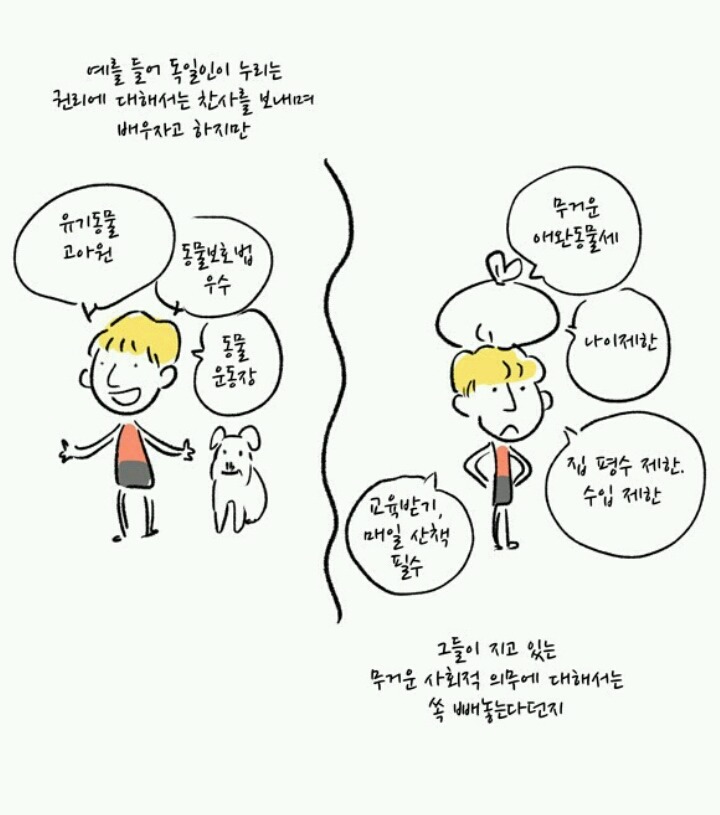 예를 들어 독일인이 누리는
권리에 대해서는 찬사를 보내며
배우자고 하지만
유기동물
고아원
동물보호법
우수
동물
운동장
무거운
애완동물세
나이제한
집 평수 제한.
수입 제한
교육받기,
매일 산책
필수
그들이 지고 있는
무거운 사회적 의무에 대해서는
쏙 빼놓는다던지